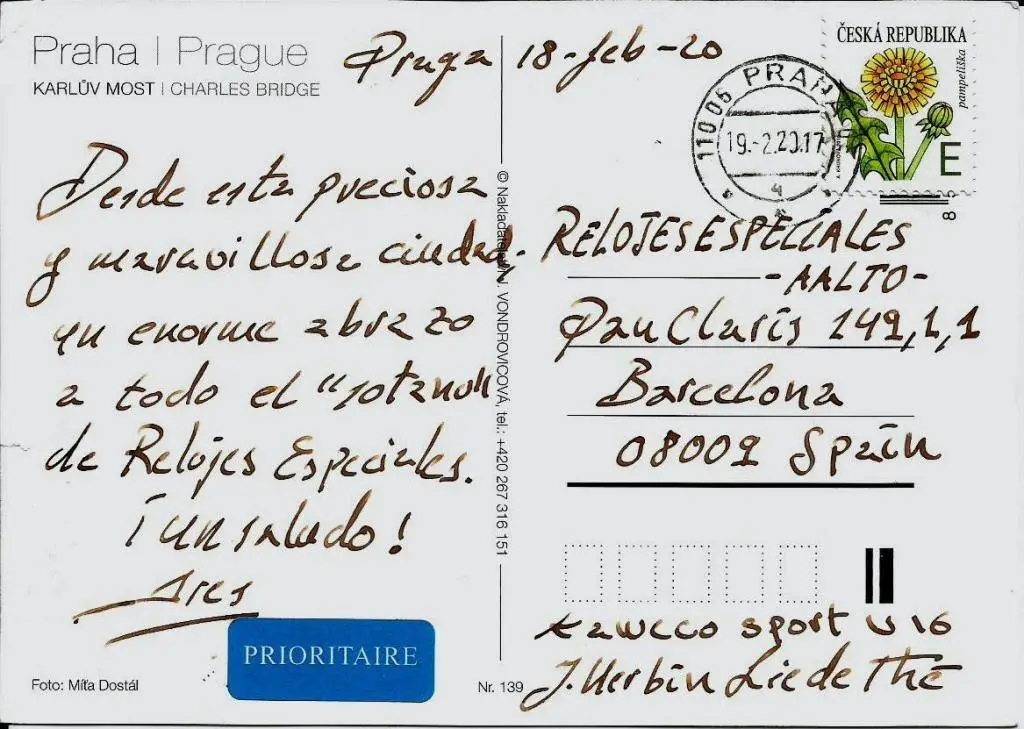 Praha | Prague
KARLŮV MOST | CHARLES BRIDGE
Praga 18-feb-20
Desde esta preciosa
y maravillosa ciudad,
un enorme abrazo
a todo el "sotano"
de Relojes Especiales.
¡Un saludo!
Ares
PRIORITAIRE
Foto: Míťa Dostál
Nr. 139
VONDROVICOVÁ, tel.: +420 267 316 151
ČESKÁ REPUBLIKA
pampeliška
E
8
11006 PRAHA
19.-2.20.17
4
RELOJES ESPECIALES
-AALTO-
Pau Clarís 149,1,1
Barcelona
08009 Spain
Kaweco sport V16
J. Herbin Lie de Thé